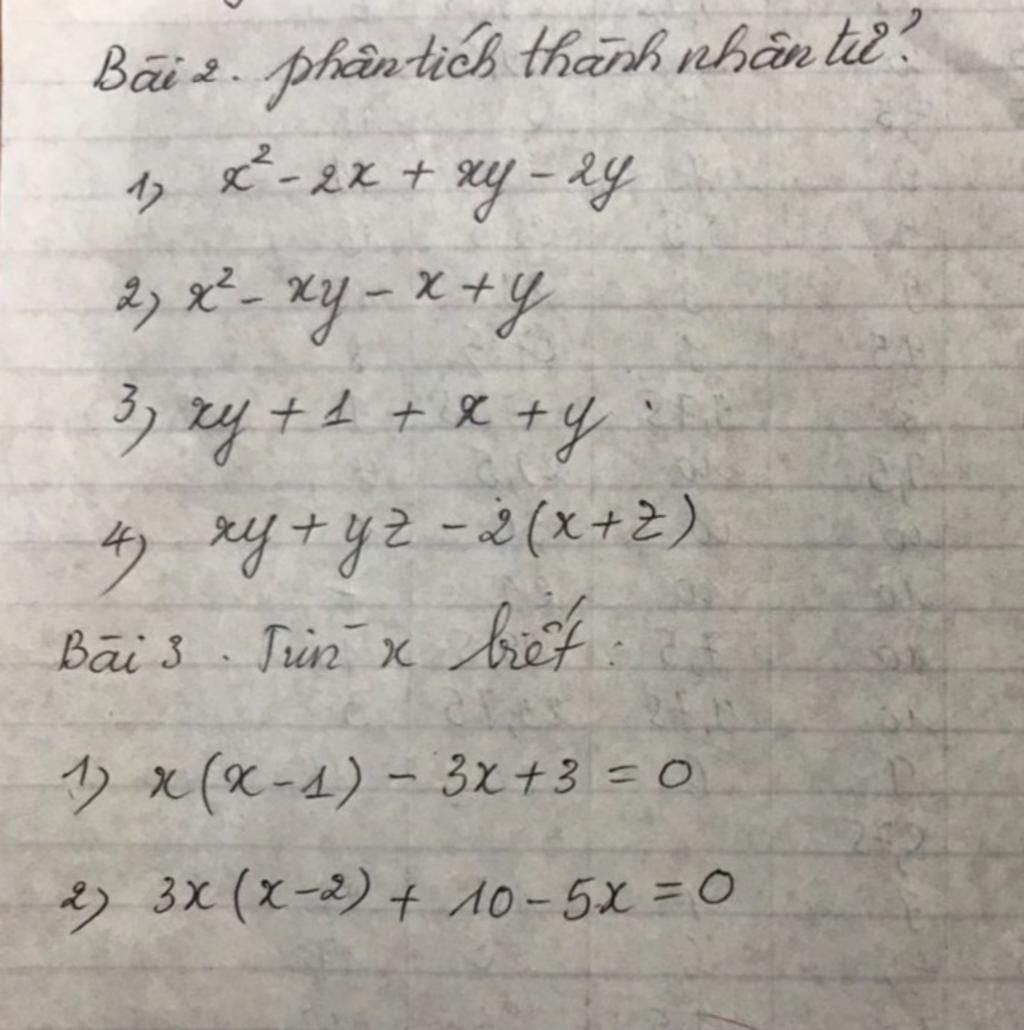 Bài 2. phân tích thành nhân tử?
1) x² - 2x + xy - 2y
2) x² - xy - x + y
3) xy + 1 + x + y
4) xy + yz - 2(x + z)
Bài 3. Tìm x biết:
1) x(x - 1) - 3x + 3 = 0
2) 3x(x - 2) + 10 - 5x = 0